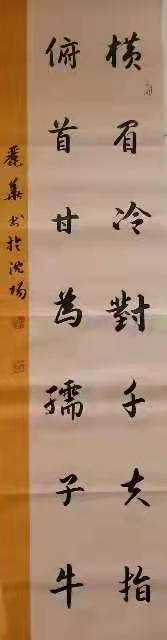 橫眉冷對千夫指
俯首甘為孺子牛
麗華書於沈陽